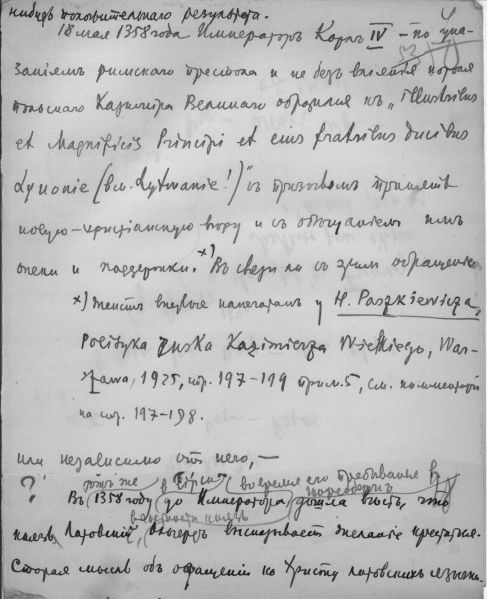 нибудь положительнаго результата.
18 мая 1358 года Императоръ Карлъ IV – по ука-
заніямъ римскаго престола и не безъ вліянія короля
польскаго Казимира Великаго обратился къ „Illustribus
et Magnificis Principi et eius fratribus ducibus
Lynonie (вм. Lytwanie!)" съ призывомъ принять
новую-христіанскую вѣру и съ обѣщаніемъ имъ
опеки и поддержки.ˣ⁾ Въ связи ли съ этимъ обращеніемъ
x) Текстъ впервые напечатанъ у H. Paszkiewicza,
Polityka ruska Kazimierza Wielkiego, War-
szawa, 1925, стр. 197-199 прим. 5, см. комментарій
на стр. 197-198.
или независимо отъ него,—
тотъ же въ во время его пребыванія въ
? Въ 1358 году до Императора дошла вѣсть, что
князь Литовскій, высказываетъ желаніе креститься.
Старая мысль объ обращеніи ко Христу литовскихъ